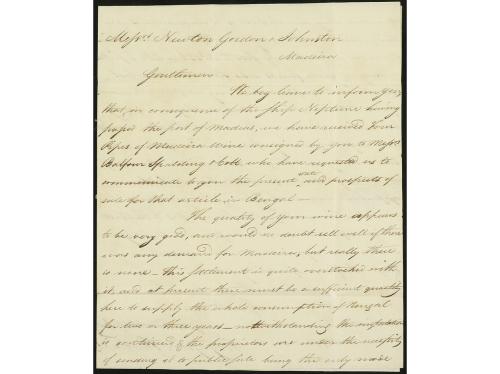 Messrs. Newton Gordon & Johnston
Madeira
Gentlemen
We beg leave to inform you
that in consequence of the ship Neptune having
passed the port of Madras, we have received Four
Pipes of Madeira Wine consigned by you to Messrs
Balfour Spalding & Co who have requested us to
communicate to you the present state and prospects of
sale for that article in Bengal —
The quality of your wine appears
to be very good, and would no doubt sell well if there
was any demand for Madeira, but really there
is none — this settlement is quite overstocked with
it, and at present there must be a sufficient quantity
here to supply the whole consumption of Bengal
for two or three years — notwithstanding the importation
is continued & the proprietors are under the necessity
of sending it to public sale being the only mode